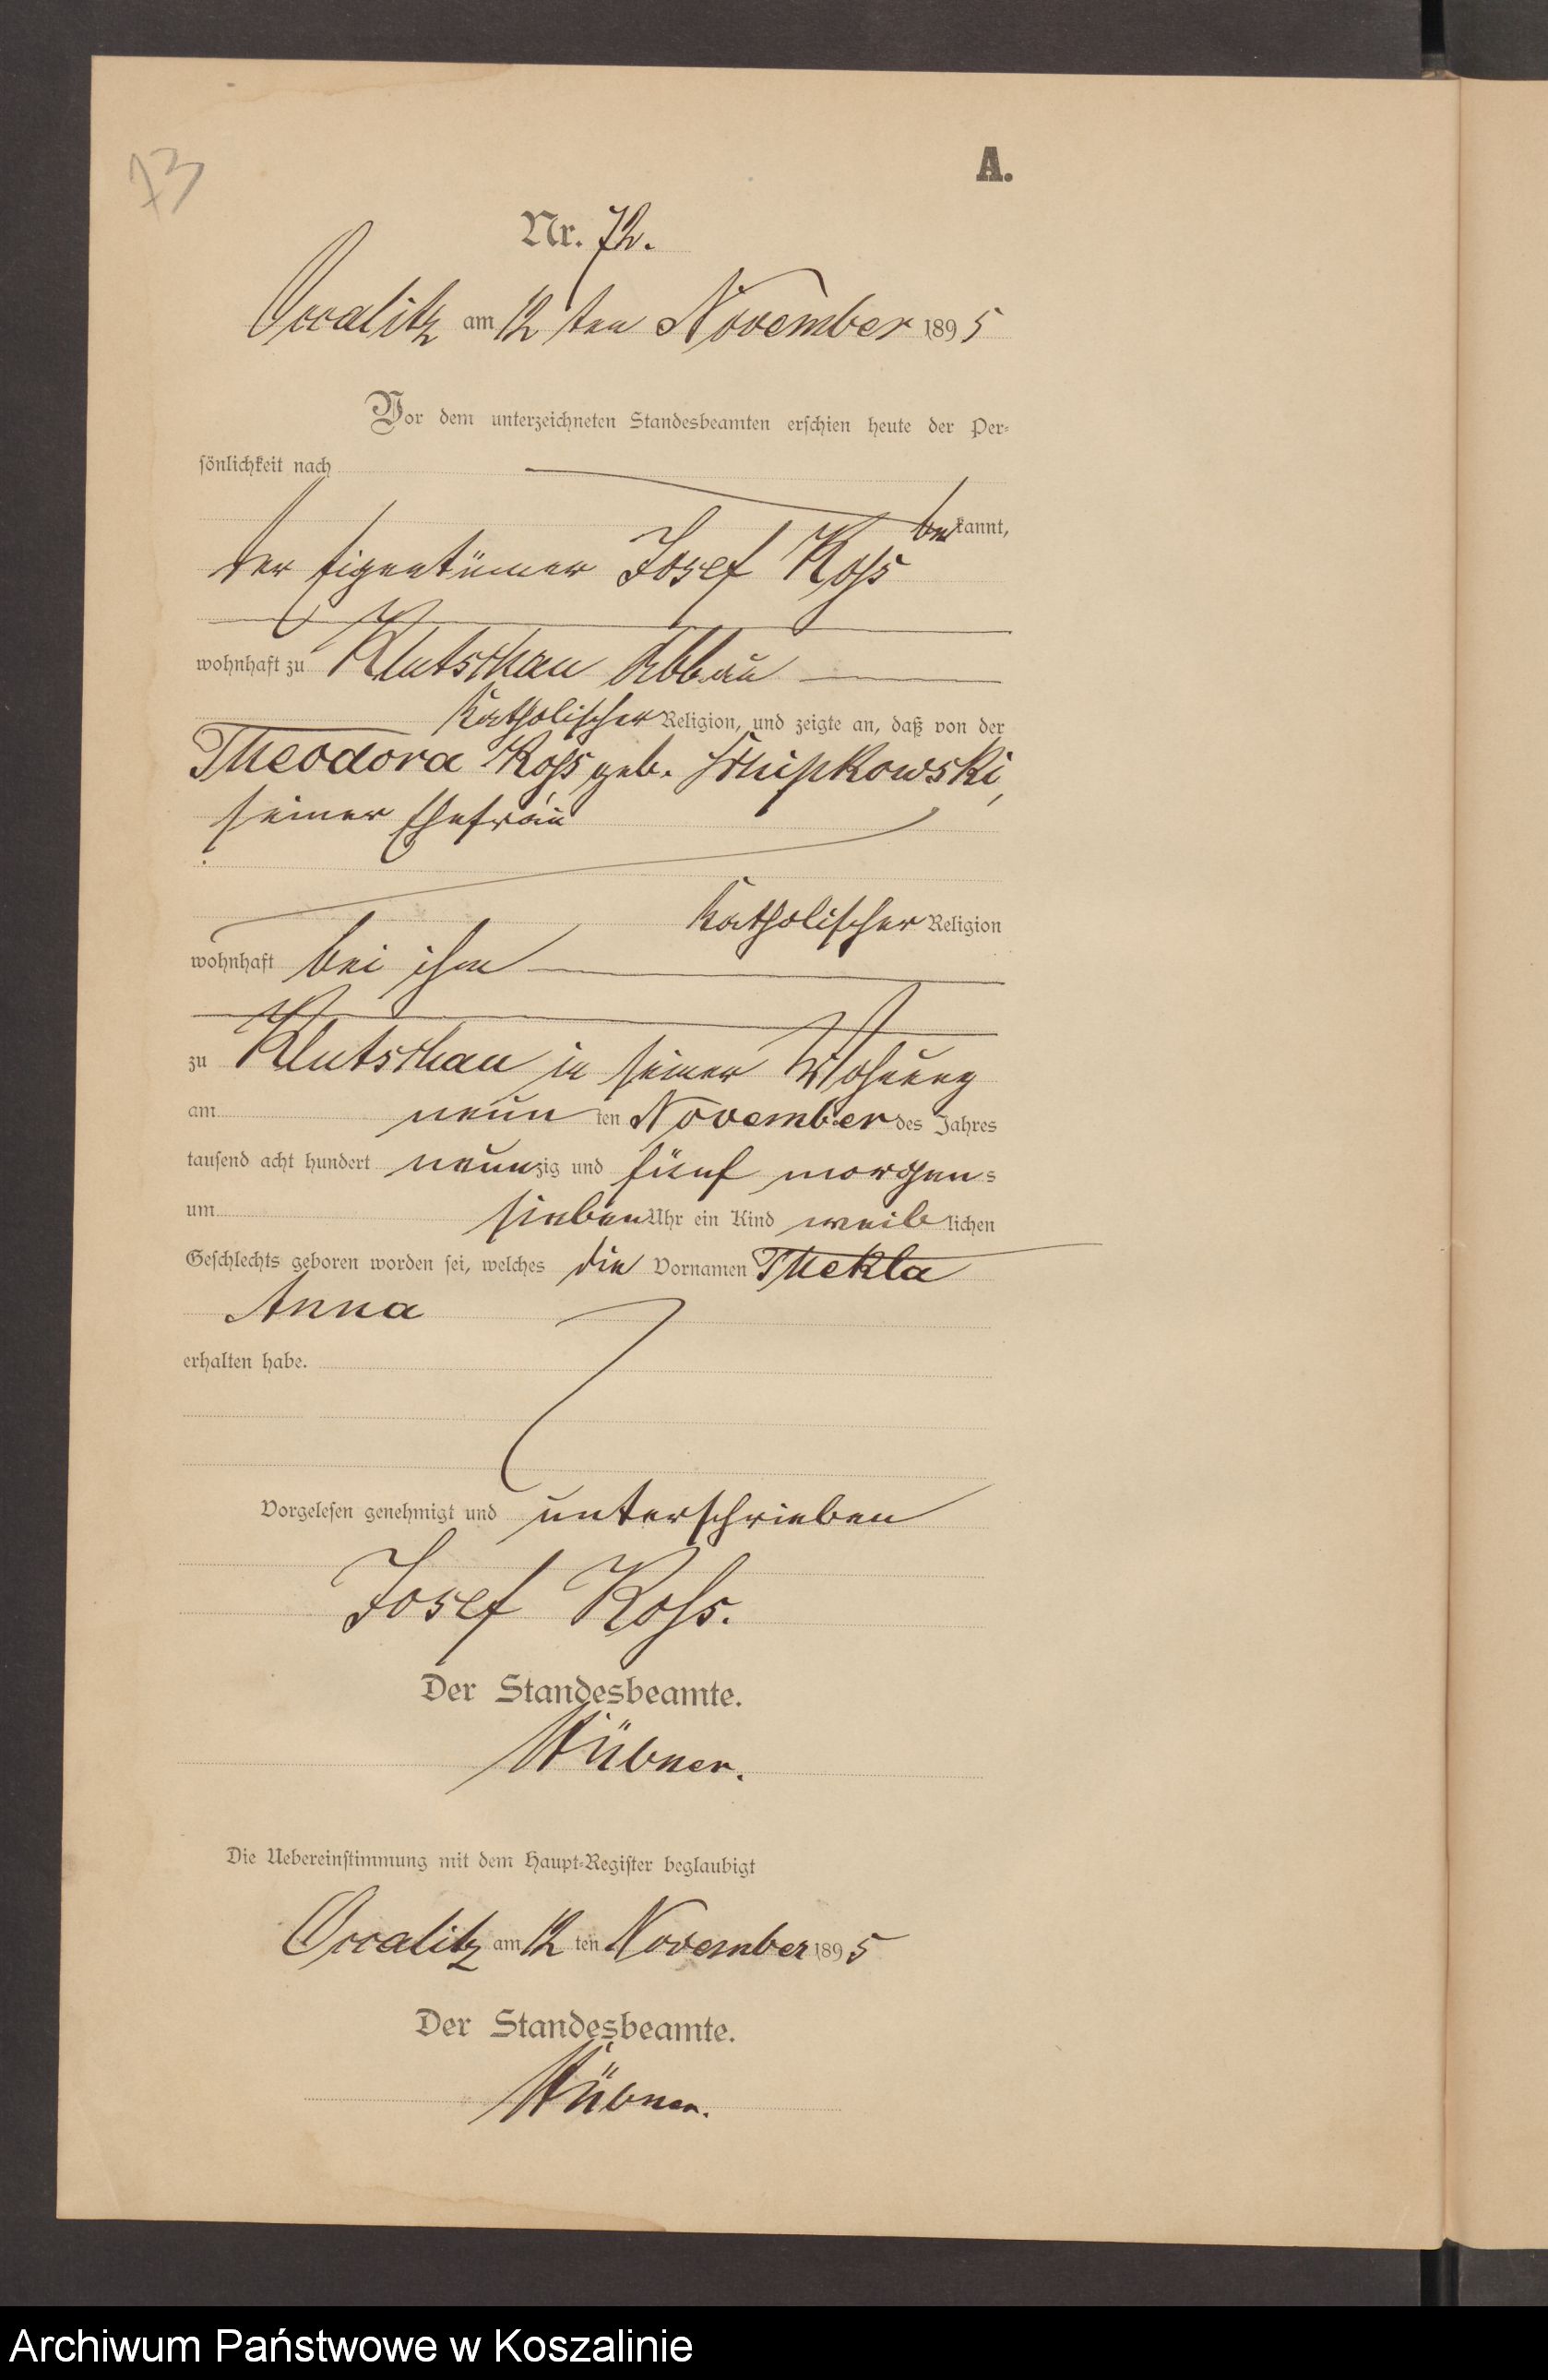 73
A.
Nr. 72.
Occalitz am 12 ten November 1895
Vor dem unterzeichneten Standesbeamten erschien heute der Per-
sönlichkeit nach
bekannt,
der Eigentümer Josef Koss
wohnhaft zu Klutschau Abbau
katholischer Religion, und zeigte an, daß von der
Theodora Koss geb. Schipkowski,
seiner Ehefrau
katholischer Religion
wohnhaft bei ihm
zu Klutschau in seiner Wohnung
am neun ten November des Jahres
tausend acht hundert neunzig und fünf morgens
um sieben Uhr ein Kind weiblichen
Geschlechts geboren worden sei, welches die Vornamen Thekla
Anna
erhalten habe.
Vorgelesen genehmigt und unterschrieben
Josef Koss.
Der Standesbeamte.
Hübner.
Die Uebereinstimmung mit dem Haupt-Register beglaubigt
Occalitz am 12 ten November 1895
Der Standesbeamte.
Hübner.
Archiwum Państwowe w Koszalinie